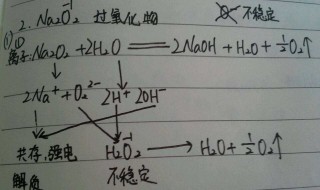 2. Na₂O₂⁻¹ 过氧化物 不稳定
(1) ① Na₂O₂ + 2H₂O ══ 2NaOH + H₂O + ½O₂↑
2Na⁺ + O₂²⁻ 2H⁺ 2OH⁻
共存,强电 H₂O₂⁻¹ → H₂O + ½O₂↑
解质 不稳定